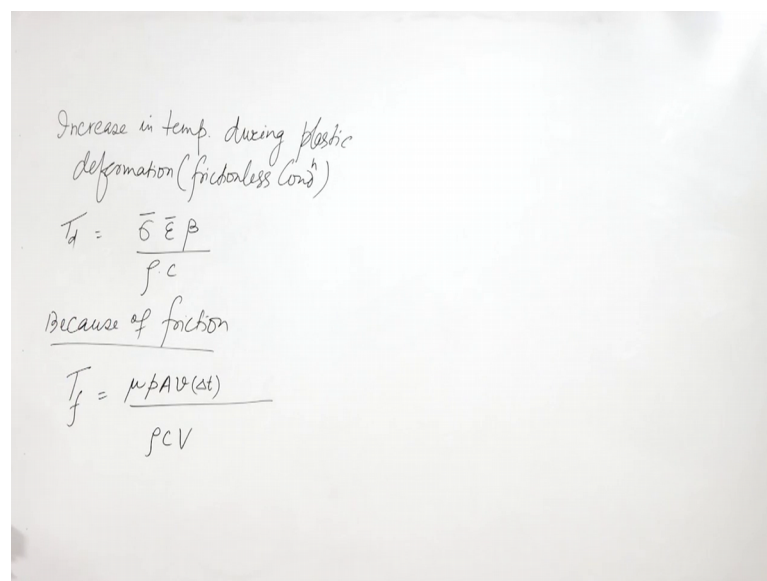 Increase in temp. during plastic
deformation (frictionless Condⁿ)
T_d = σ̄ ε̄ β / ρ.c
Because of friction
T_f = μpAv(Δt) / ρCV